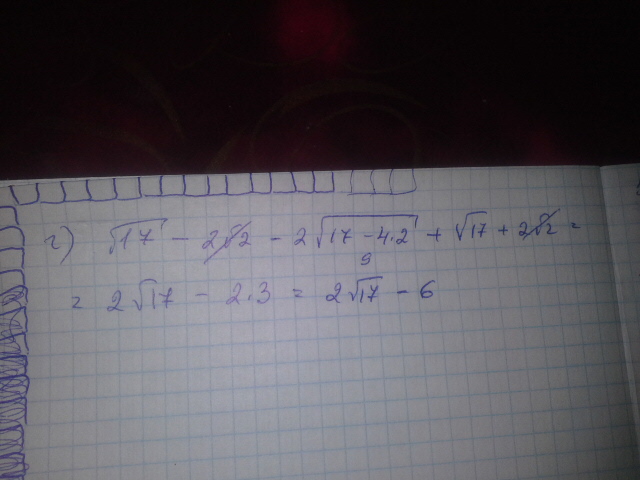 г) √17 - 2√2 - 2√17-4.2 + √17 + 2√2 =
9
= 2√17 - 2.3 = 2√17 - 6